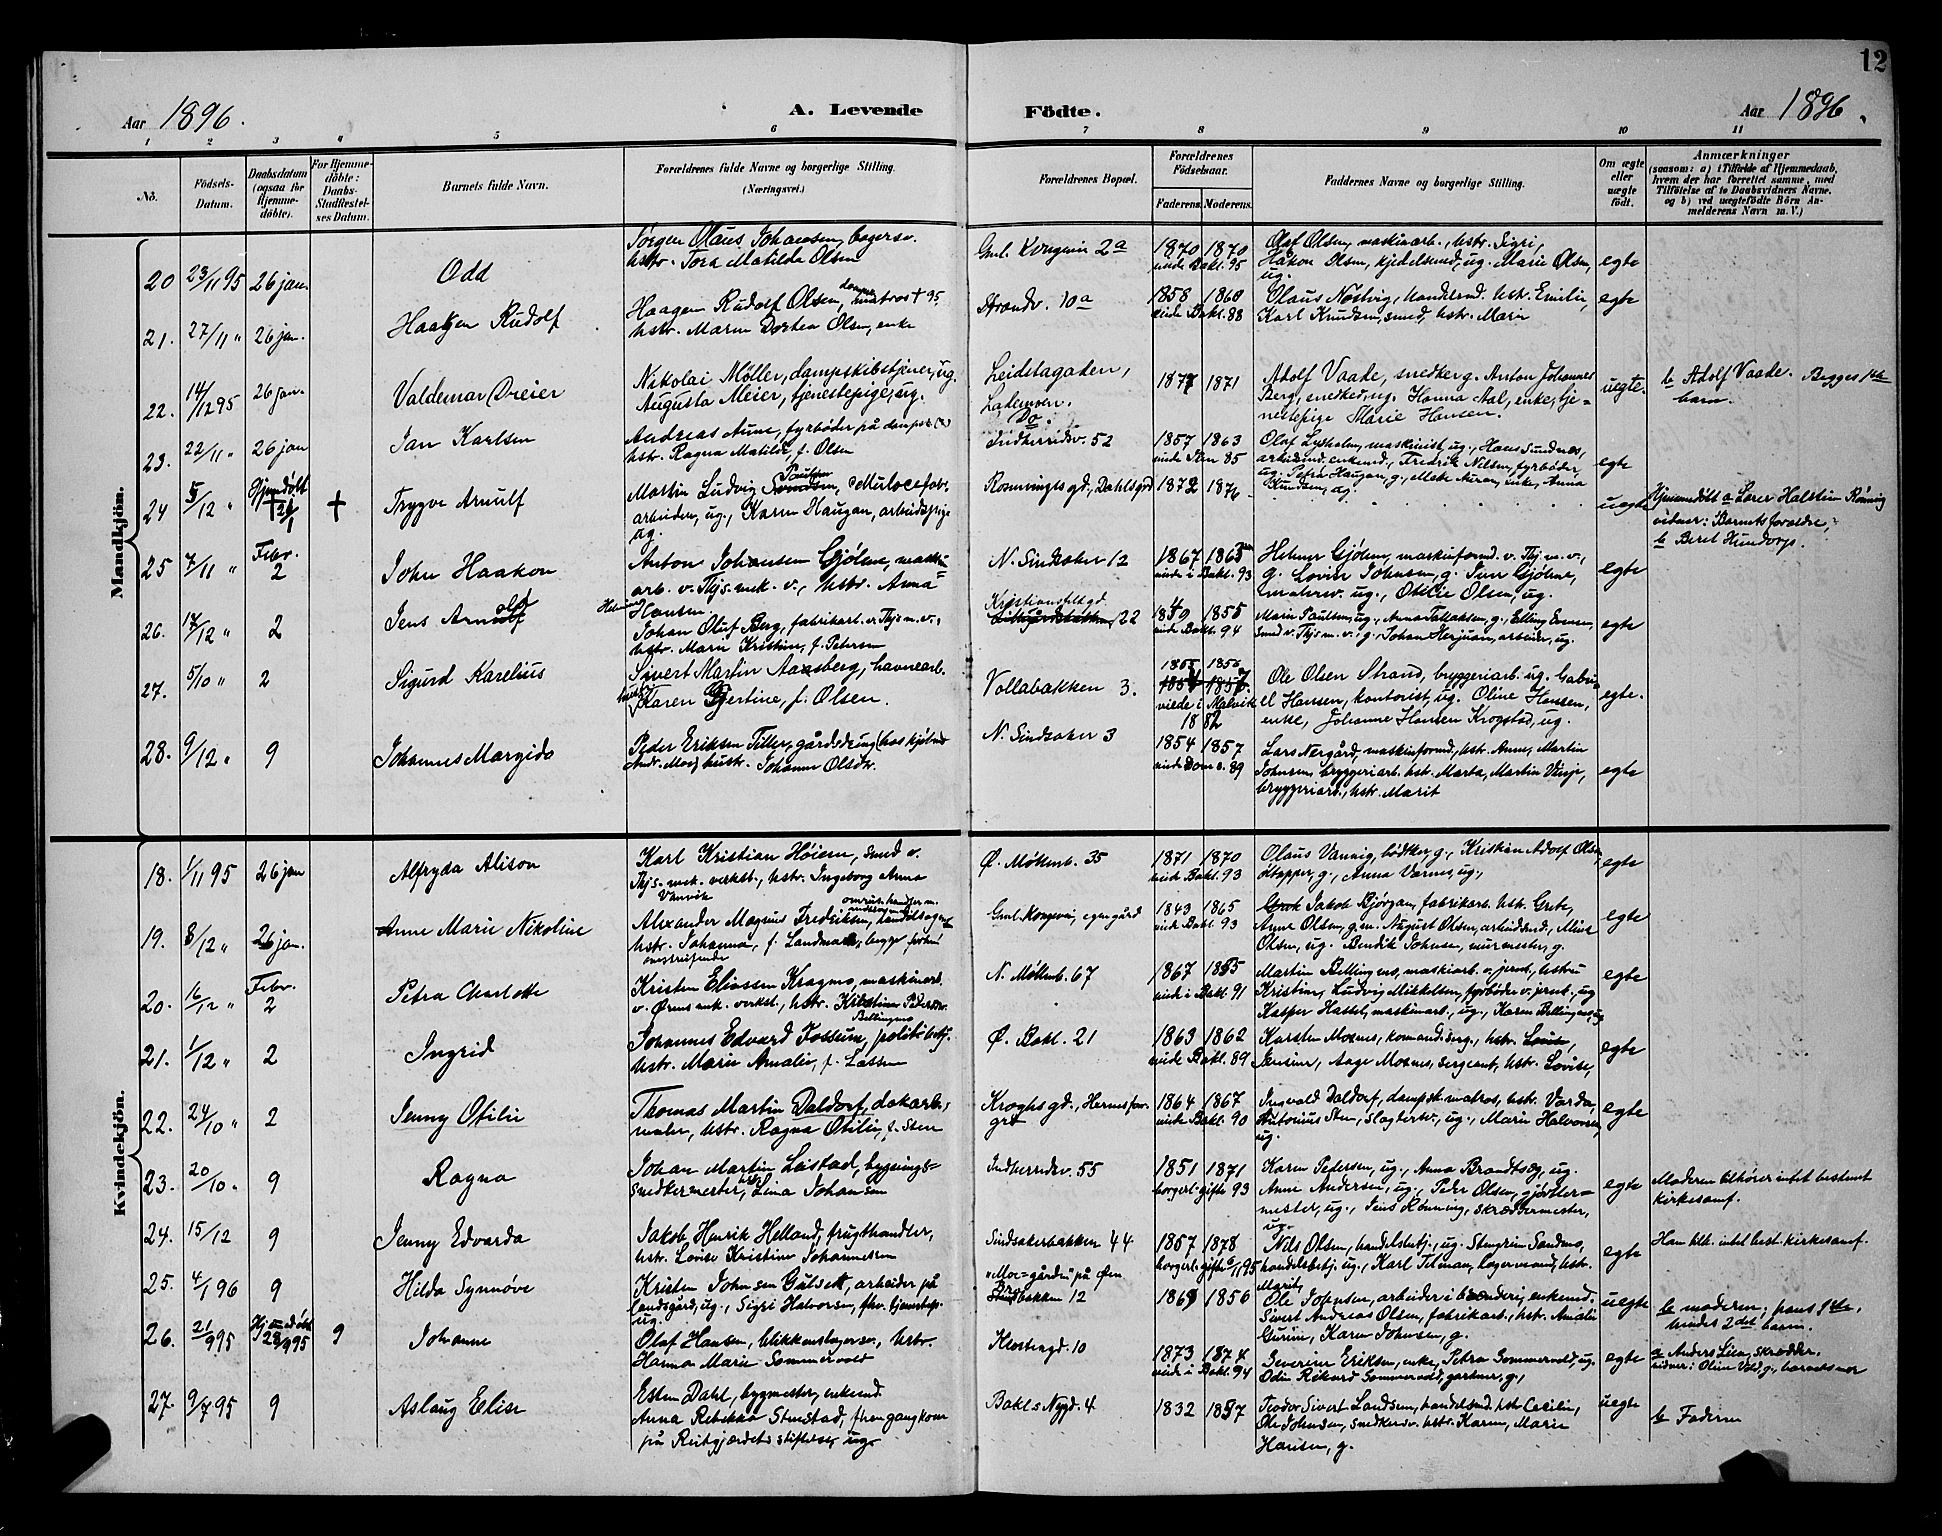 12
Aar 1896.
A. Levende
Födte.
Aar 1896.
1 2 3 4 5 6 7 8 9 10 11
No.
Födsels-
Datum.
Daabsdatum
(ogsaa for
Hjemme-
döbte).
For Hjemme-
döbte:
Daabs-
Stadfæstel-
ses Datum.
Barnets fulde Navn.
Forældrenes fulde Navne og borgerlige Stilling.
(Næringsvei.)
Forældrenes Bopæl.
Forældrenes
Födselsaar.
Faderens. Moderens.
Faddernes Navne og borgerlige Stilling.
Om ægte
eller
uægte
födt.
Anmærkninger
(saasom: a) i Tilfælde af Hjemmedaab,
hvem der har forrettet samme, med
Tilföielse af to Daabsvidners Navne,
og b) ved uægtefödte Börn An-
melderens Navn m. V.)
Mandkjön.
20 23/11 95 26 jan. Odd
Jørgen Olaus Johansen, bagersv.
hstr. Tora Matilda Olsen
Gml. Kongevei 2a
1870 1870
viede Bakl. 95
Olaf Olsen, maskinarb., hstr. Sigri,
Håkon Olsen, kjedelsmed, ug. Marie Olsen,
ug.
egte
21. 27/11 " 26 jan. Haagen Rudolf
Haagen Rudolf Olsen, matros + 95
hstr. Maren Dortea Olsen, enke
Strandv. 10a
1858 1860
viede Bakl. 88
Olaus Nøstvig, handelsmd. hstr. Emilie,
Karl Knudsen, smed, hstr. Marie
egte
22. 14/12 95 26 jan. Valdemar Dreier
Nikolai Møller, dampskibstjener, ug.
Augusta Meier, tjenestepige, ug.
Leidetagaden,
Lademoen.
Do.
1877 1871
Adolf Vaade, snedker g. Anton Johannes
Berg, snedker, ug. Hanna Aal, enke, tje=
nestepige Marie Hansen.
uegte.
b Adolf Vaade. Begges 1ste
barn.
23. 22/11 " 26 jan Jan Karlsen
Andreas Aune, fyrbøder på dampsk.
hstr. Ragna Matilde, f. Olsen
Indherredsv. 52
1857 1863
85
Olaf Lysholm, maskinist ug., Hans Sundnes,
arbeidsmd. enkemd., Fredrik Nilsen, fyrbøder,
ug. Petra Haugan, g., enke, Anna
Knudsen, ug.
egte
24 5/12 " Hjemdøbt + 26/1 + Trygve Arnulf
Martin Ludvig Paulsen
arbeider, ug., Karen Haugan, arbeidspige
ug.
Ronningsgd., Dahlsgrd
1872 1876
uegte
Hjemmedøbt a Lærer Halstein Rønning
vidner: Barnets forældre,
b Beret Hundorp.
25 7/11 " Febr. 2 John Haakon
Anton Johansen Gjølme, maskin
arb. v. Thjs. mek. v., hstr. Anna
Hansen.
N. Sindsaker 12
1867 1865
viede i Bakl. 93
Helmer Gjølme, maskinformd. v. Thj m. v.,
g. Lovise Johnsen, g. Gjølme,
malersv. ug., Otelie Olsen, ug.
egte
26. 18/12 " 2 Jens Arnold
Johan Oluf Berg, fabrikarb. v. Thjs m. v.,
hstr. Maren Kristine, f. Petersen
Kristiansfeltgd.
22
1849 1855
viede Bakl. 94
Marie Paulsen, ug., Anna Tollaksen, g., Elling Evensen,
smed v. Thjs m. v., g., Johan Herjuan, arbeider, ug.
egte
27. 5/10 " 2 Sigurd Karelius
Sivert Martin Aaasberg, havnearb.
hustr. Karen Gjertine, f. Olsen.
Vollabakken 3.
1855 1856
viede i Malvik
1882
Ole Olsen Strand, bryggeriarb. ug. Gabri=
el Hansen, kontorist, ug. Oline Hansen,
enke, Johanne Hansen Krogstad, ug.
egte.
28. 9/12 " 9 Johannes Margido
Peder Eriksen Tiller, gårdsdreng (hos kjøbmd
Andr. Moe) hustr. Johanna Olsdtr.
N. Sindsaker 3
1854 1857
viede Dom. s. 89
Lars Nergård, maskinformd., hstr. Anne, Martin
Johnsen, bryggeriarb. hstr. Marta, Martin Vinje,
bryggeriarb., hstr. Marit
egte
Kvindekjön.
18. 1/11 95 26 jan Alfryda Alison
Karl Kristian Høiem, smed v.
Thjs. mek. verkst., hstr. Ingeborg Anna
Vanvik
Ø. Møllenb. 35
1871 1870
viede Bakl. 93
Olaus Vannig, bødker, g., Kristian Adolf Olsen
øltapper, g., Anna Værnes, ug.,
egte
19. 8/12 " 26 jan. Anne Marie Nikoline
Alexander Magnus Fredriksen, handelsagent
hstr. Johanna, f. Landmark, begge forhen
Gml. Kongevei, egen gård
1843 1865
viede Bakl. 93
Jakob Bjørgan, fabrikarb. hstr. Grete,
Anne Olsen, g. m. August Olsen, arbeidsmd., Mine
Olsen, ug. Bendik Johnsen, murmester, g.
egte
20. 16/12 " Febr. 2 Petra Charlotte
Kristen Eliassen Kragmo, maskinarb.
v. Ørens mek. verkst., hstr. Kristine Pedersdtr.
Bellingmo
N. Møllenb. 67
1867 1855
viede i Bakl. 91
Martin Bellingmo, maskinarb. v. jernb., hstru
Kristine, Ludvig Mikkelsen, fyrbøder v. jernb., ug
Kasper Hassel, maskinarb., ug., Karen Bellingmo, ug
egte
21. 1/12 " 2 Ingrid
Johannes Edvard Fossum, politibetj.
hstr. Marie Amalie, f. Lassen
Ø. Bakl. 21
1863 1862
viede Bakl. 89
Karsten Moxnes, kommandersg., hstr.
Jensine, Aage Moxnes, sergeant, hstr. Lovise,
egte
22. 24/10 " 2 Jenny Otilie
Thomas Martin Daldorf, dokarb.,
maler, hstr. Ragna Otilie, f. Sten
Kroghs gd., Hernesfor.
grd
1864 1867
viede Bakl. 90
Ingvald Daldorf, dampsk. matros, hstr. Varda,
Antonius Sten, slagtersv., ug., Marie Halvorsen,
ug.
egte
23. 20/10 " 9 Ragna
Johan Martin Løistad, bygnings-
snedkermester, hstr. Lina Johansen
Indherredsv. 55
1851 1871
borgerl. gifte 93
Karen Petersen, ug., Anna Brandtsæg, ug.
Anne Andersen, ug., Peder Olsen, gjørtler=
mester, ug., Jens Rønning, skræddermester,
ug.
egte
Moderen tilhører intet bestemt
kirkesamf.
24. 15/12 9 Jenny Edvarda
Jakob Henrik Helland, frugthandler,
hstr. Louise Kristine Johannesen
Sindsakerbakken 44
1857 1878
borgerl. gifte 95
Nils Olsen, handelsbetj., ug. Stengrim Sandmo,
handelsbetj. ug., Karl Tilman, lagermand, hstr.
Marit,
egte
Ham tilh. intet best. kirkesamf.
25. 4/1 96 9 Hilda Synnøve
Kristen Johnsen Gulseth, arbeider på
landsgård, ug., Sigri Halvorsen, fhv. tjenstep.
ug.
"Moe=gården" på Øen
bakken 12
1869 1856
Ole Johnsen, arbeider i brænderi, enkemd.
Sivert Andreas Olsen, fabrikarb., hstr. Amalie
Gurine, Karen Johnsen, g.
uegte
b moderen, hans 1ste,
hendes 2det barn.
26. 21/9 95 Hjemmedøbt 28/9 95 9 Johanne
Olaf Hansen, blikkenslagersv., hstr.
Hanna Marie Sommervold
Klostergd. 10
1873 1874
viede i Bakl. 94
Severine Eriksen, enke, Petra Sommervold, ug.
Odin Rikard Sommervold, gartner, g.,
egte
a Anders Lien, skrædder.
vidner: Oline Vold, g., barnets mor
27. 9/7 95 9 Aslaug Elise
Esten Dahl, bygmester, enkemd.
Anna Rebekka Stenstad, gangkone
på Reitgjærdets stiftelse, ug.
Bakl. s Nygd. 4
1832 1857
Teodor Sivert Landsem, handelsmd. hstr. Cecilie,
Ole Johnsen, snedkersv. hstr. Karen, Marie
Hansen, g.
uegte
b Faderen